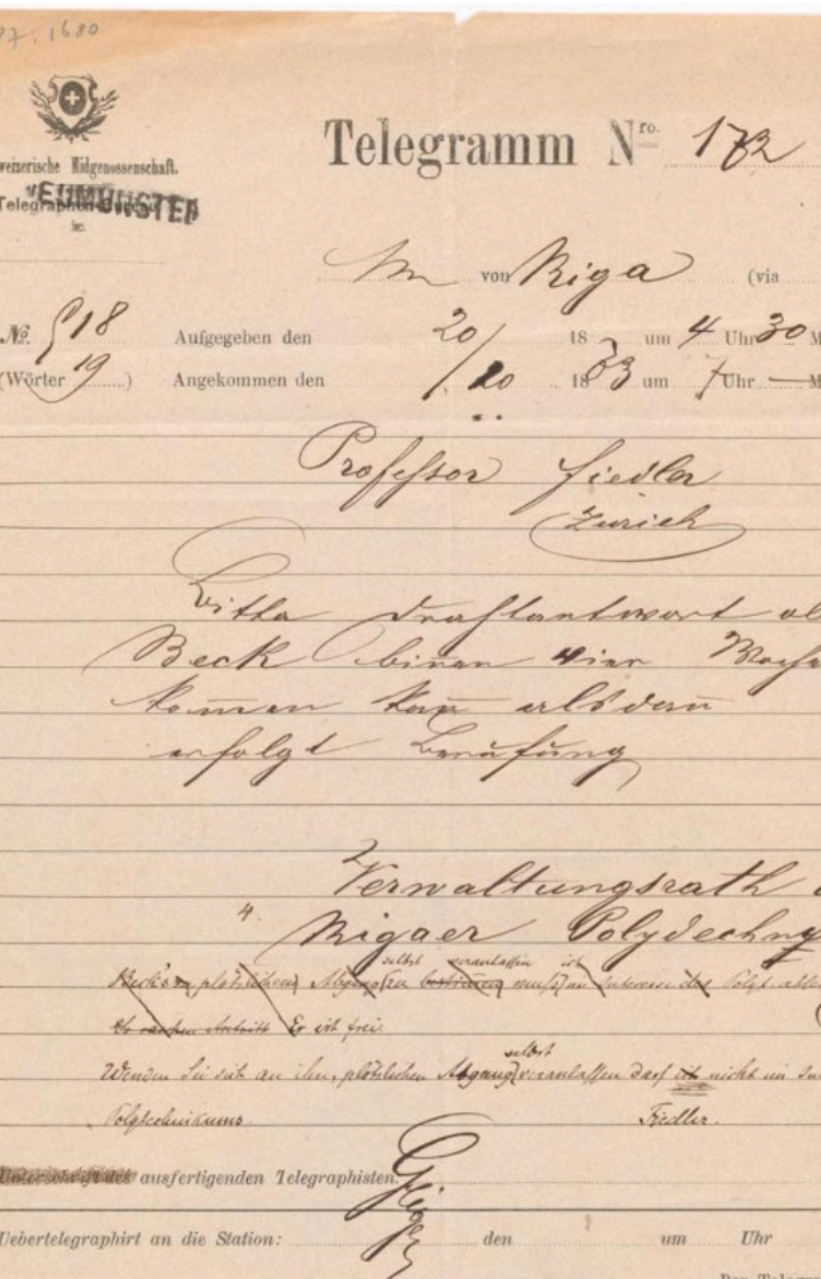 97: 1680
weizerische Eidgenossenschaft.
Telegraphen-Bureau
NEUMÜNSTER
Telegramm Nro. 172
von Riga (via
№. 518 Aufgegeben den 20/ 18 um 4 Uhr 30 M
(Wörter 19) Angekommen den /10 1883 um 7 Uhr — M
Professor Fiedler
Zürich
Bitte Drahtantwort ob
Beck binen vier Woche
kom̄en kan̄ alsdan̄
erfolgt Berufung
Verwaltungsrath
Rigaer Polydechny
selbst veranlassen ich
Beck's plötzlichen Abgang zu muß im Interesse des Polyt. able
So raschen Antritt Er ist frei.
selbst
Wenden Sie sich an ihn, plötzlichen Abgang veranlassen darf ich nicht im In
Polytechnikums Fiedler.
Unterschrift des ausfertigenden Telegraphisten:
Uebertelegraphirt an die Station: den um Uhr